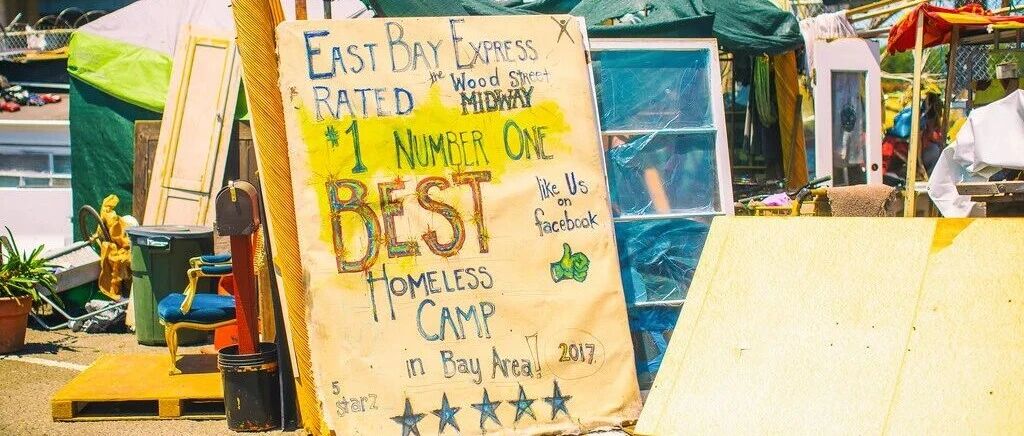 EAST BAY EXPRESS
RATED the Wood Street
MIDWAY
#1 NUMBER ONE
BEST
like Us
on
facebook
HOMELESS
CAMP
in Bay Area! 2017
5
starz